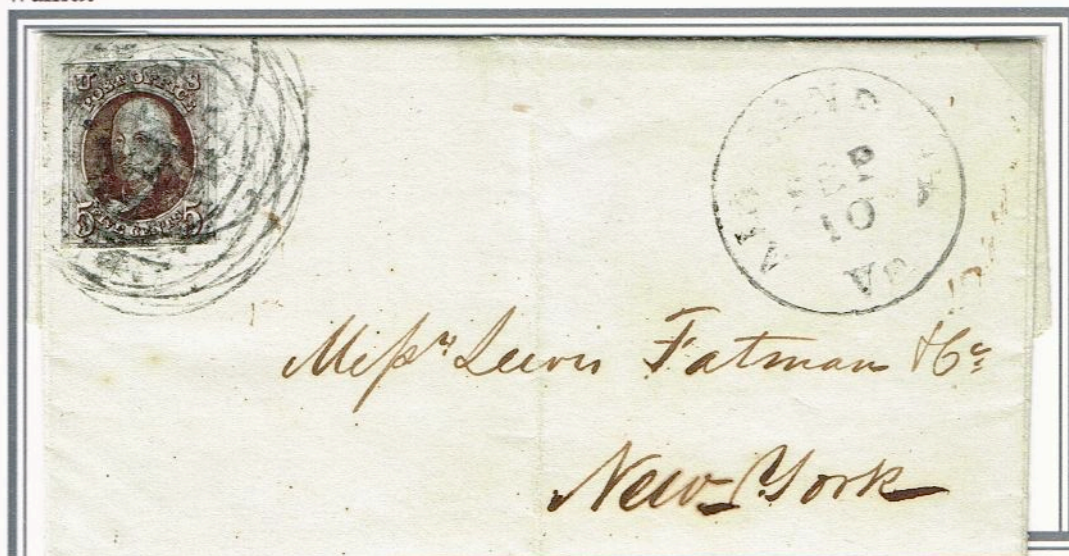 U S
POST OFFICE
5 FIVE CENTS 5
10
VA
Messrs Lewis Fatman & Co
New York